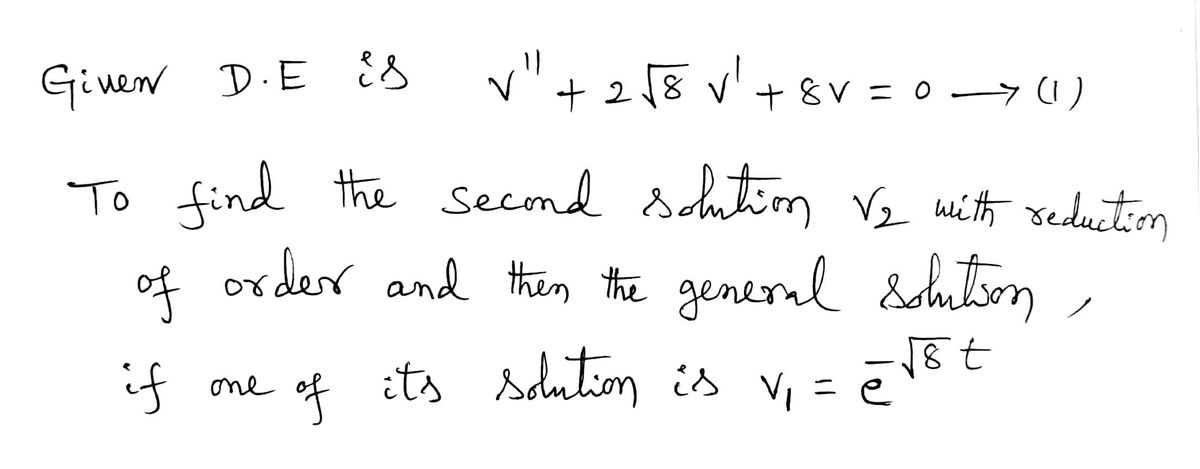 Given D.E is v'' + 2√8 v' + 8v = 0 → (1)
To find the second solution v₂ with reduction
of order and then the general solution,
if one of its solution is v₁ = e^{-√8 t}